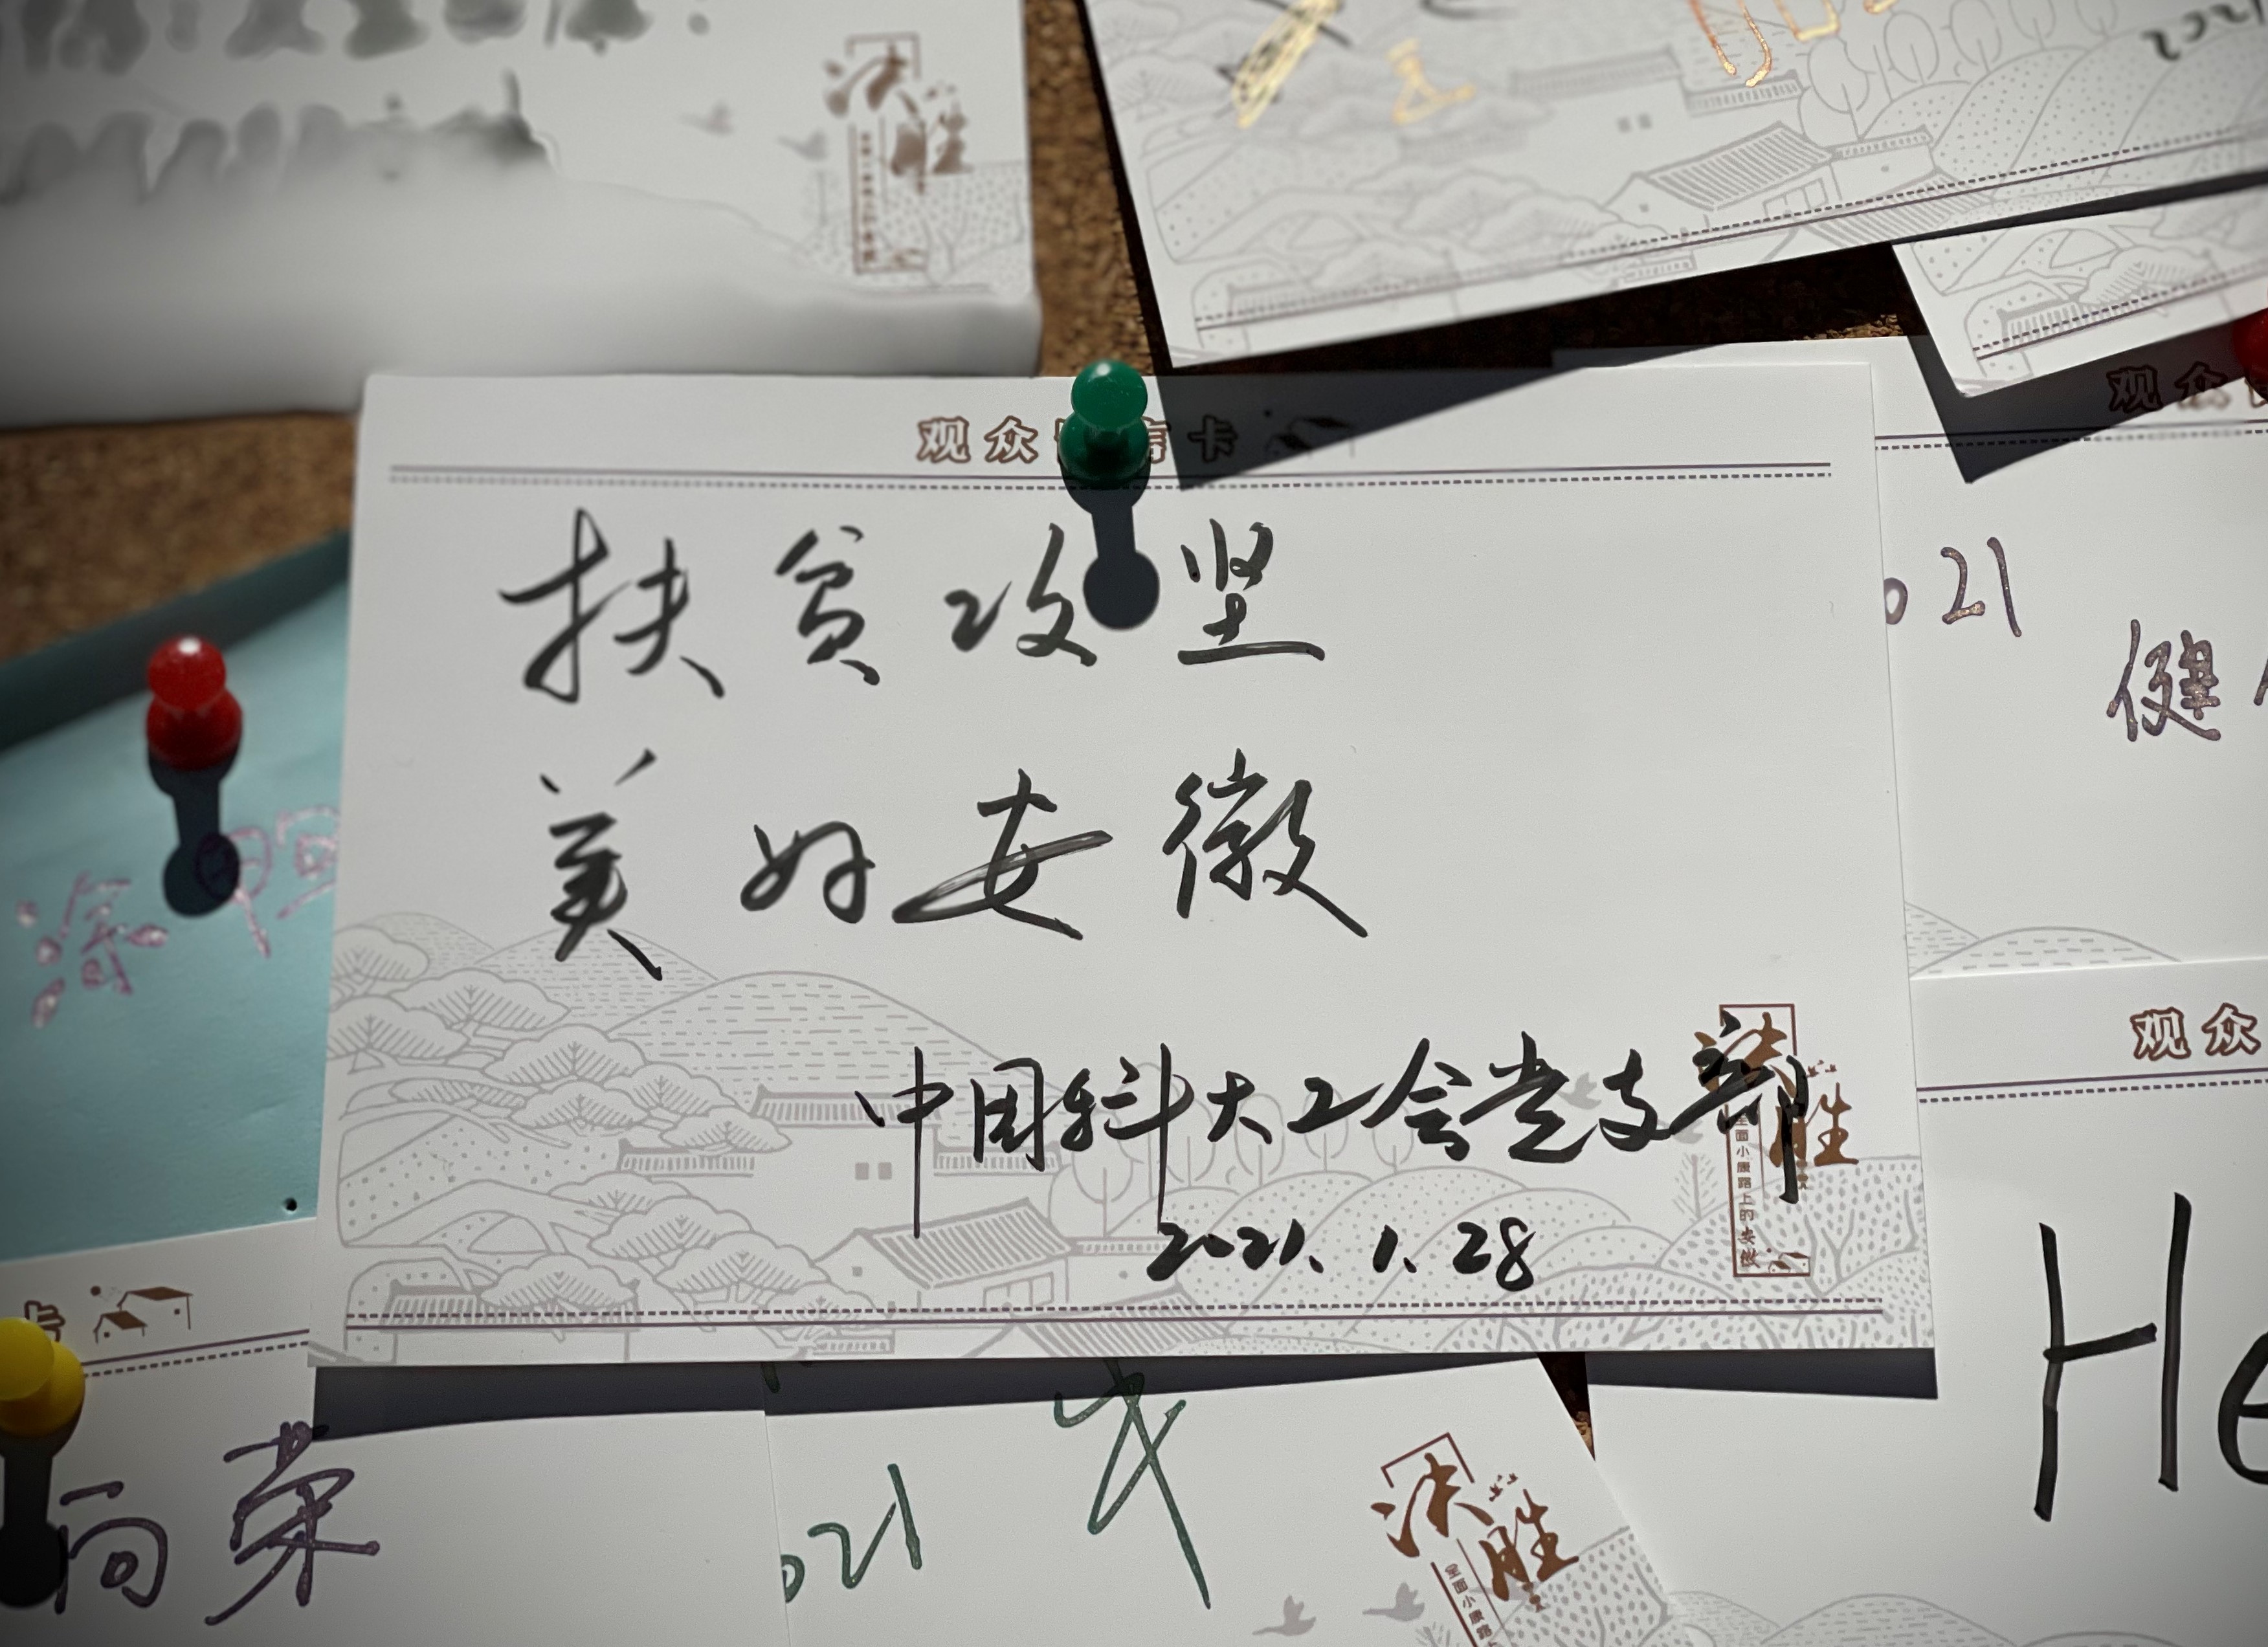 决胜
观众 言卡
扶贫攻坚
美好安徽
中国科大工会党支部
2021.1.28
决胜
全面小康路上的安徽
观众
021
健
观众
He
卡
向荣
021
决胜
全面小康路上